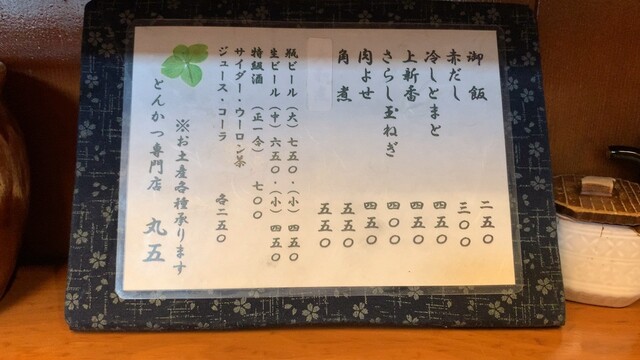 御飯 二五〇
赤だし 三〇〇
冷しとまと 四五〇
上新香 四五〇
さらし玉ねぎ 四〇〇
肉よせ 四五〇
角煮 五五〇
五五〇
瓶ビール（大）七五〇・（小）四五〇
生ビール（中）六五〇・（小）四五〇
特級酒（正一合）七〇〇
サイダー・ウーロン茶
ジュース・コーラ 各二五〇
※お土産各種承ります
とんかつ専門店 丸五